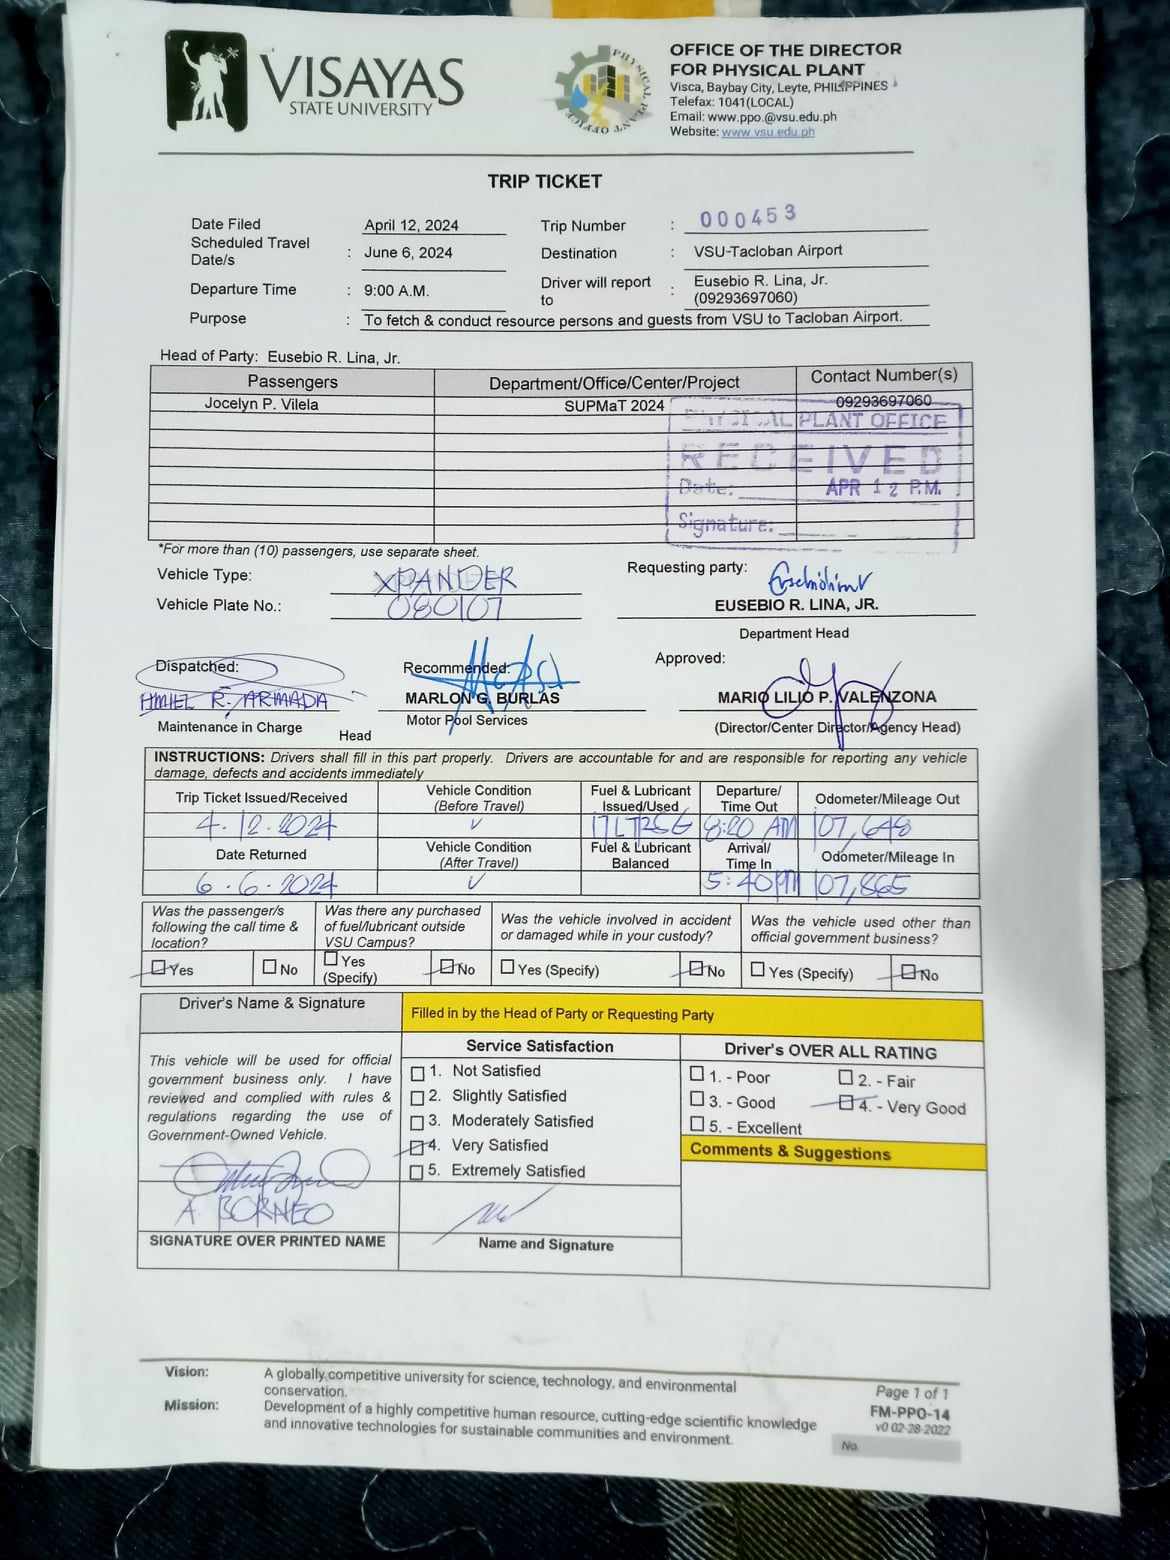 VISAYAS
STATE UNIVERSITY
PHYSICAL PLANT OFFICE
OFFICE OF THE DIRECTOR
FOR PHYSICAL PLANT
Visca, Baybay City, Leyte, PHILIPPINES
Telefax: 1041(LOCAL)
Email: www.ppo.@vsu.edu.ph
Website: www.vsu.edu.ph
TRIP TICKET
Date Filed April 12, 2024 Trip Number : 000453
Scheduled Travel Date/s : June 6, 2024 Destination : VSU-Tacloban Airport
Departure Time : 9:00 A.M. Driver will report to : Eusebio R. Lina, Jr. (09293697060)
Purpose : To fetch & conduct resource persons and guests from VSU to Tacloban Airport.
Head of Party: Eusebio R. Lina, Jr.
Passengers Department/Office/Center/Project Contact Number(s)
Jocelyn P. Vilela SUPMaT 2024 09293697060
PHYSICAL PLANT OFFICE
RECEIVED
Date: APR 12 P.M.
Signature:
*For more than (10) passengers, use separate sheet.
Vehicle Type: XPANDER
Requesting party:
Vehicle Plate No.: 080107
EUSEBIO R. LINA, JR.
Department Head
Dispatched: Recommended: Approved:
R. ARMADA MARLON G. BURLAS MARIO LILIO P. VALENZONA
Maintenance in Charge Motor Pool Services (Director/Center Director/Agency Head)
Head
INSTRUCTIONS: Drivers shall fill in this part properly. Drivers are accountable for and are responsible for reporting any vehicle
damage, defects and accidents immediately
Trip Ticket Issued/Received Vehicle Condition (Before Travel) Fuel & Lubricant Issued/Used Departure/ Time Out Odometer/Mileage Out
4.12.2024 8:20 AM 107,648
Date Returned Vehicle Condition (After Travel) Fuel & Lubricant Balanced Arrival/ Time In Odometer/Mileage In
6.6.2024 5:40PM 107,865
Was the passenger/s following the call time & location? Was there any purchased of fuel/lubricant outside VSU Campus? Was the vehicle involved in accident or damaged while in your custody? Was the vehicle used other than official government business?
Yes No Yes (Specify) No Yes (Specify) No Yes (Specify) No
Driver's Name & Signature
Filled in by the Head of Party or Requesting Party
This vehicle will be used for official
government business only. I have
reviewed and complied with rules &
regulations regarding the use of
Government-Owned Vehicle.
A BORNEO
SIGNATURE OVER PRINTED NAME
Service Satisfaction
1. Not Satisfied
2. Slightly Satisfied
3. Moderately Satisfied
4. Very Satisfied
5. Extremely Satisfied
Name and Signature
Driver's OVER ALL RATING
1. - Poor 2. - Fair
3. - Good 4. - Very Good
5. - Excellent
Comments & Suggestions
Vision: A globally competitive university for science, technology, and environmental
conservation.
Mission: Development of a highly competitive human resource, cutting-edge scientific knowledge
and innovative technologies for sustainable communities and environment.
Page 1 of 1
FM-PPO-14
v0 02-28-2022
No.